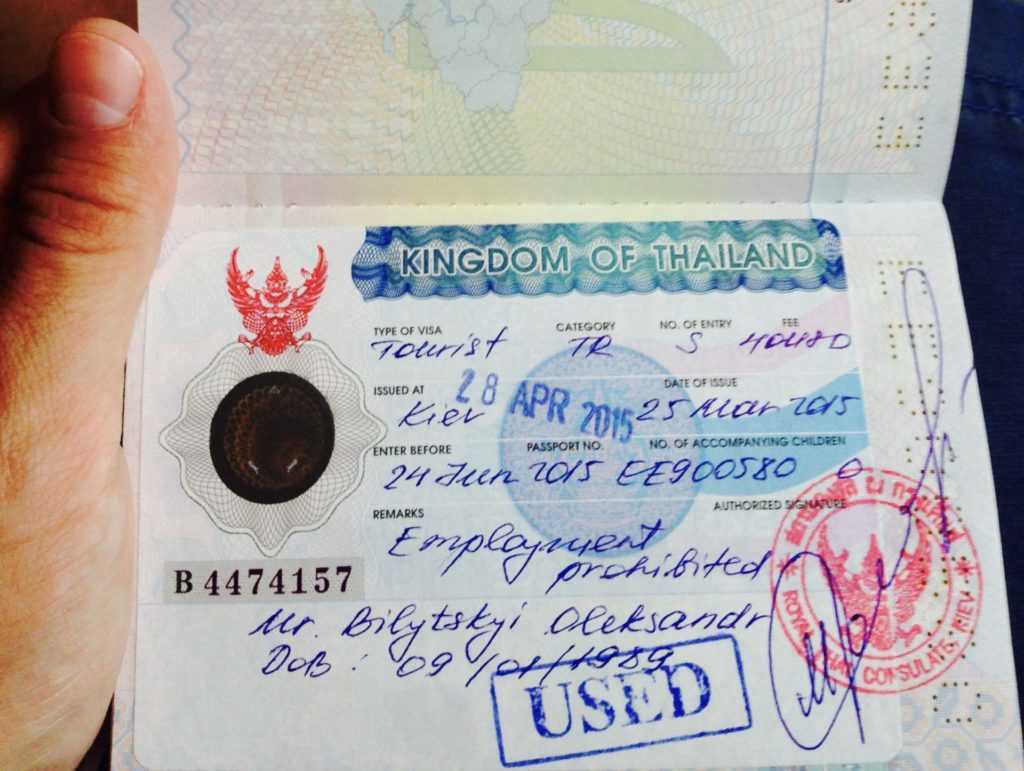 KINGDOM OF THAILAND
TYPE OF VISA CATEGORY NO. OF ENTRY FEE
Tourist TR S 40USD
ISSUED AT 28 APR 2015 DATE OF ISSUE
Kiev 25 Mar 2015
ENTER BEFORE PASSPORT NO. NO. OF ACCOMPANYING CHILDREN
24 Jun 2015 EE900580 0
REMARKS AUTHORIZED SIGNATURE
Employment
prohibited
B 4474157
Mr. Bilytskyi Oleksandr
DoB : 09/01/1989
USED
ROYAL THAI CONSULATE, KIEV